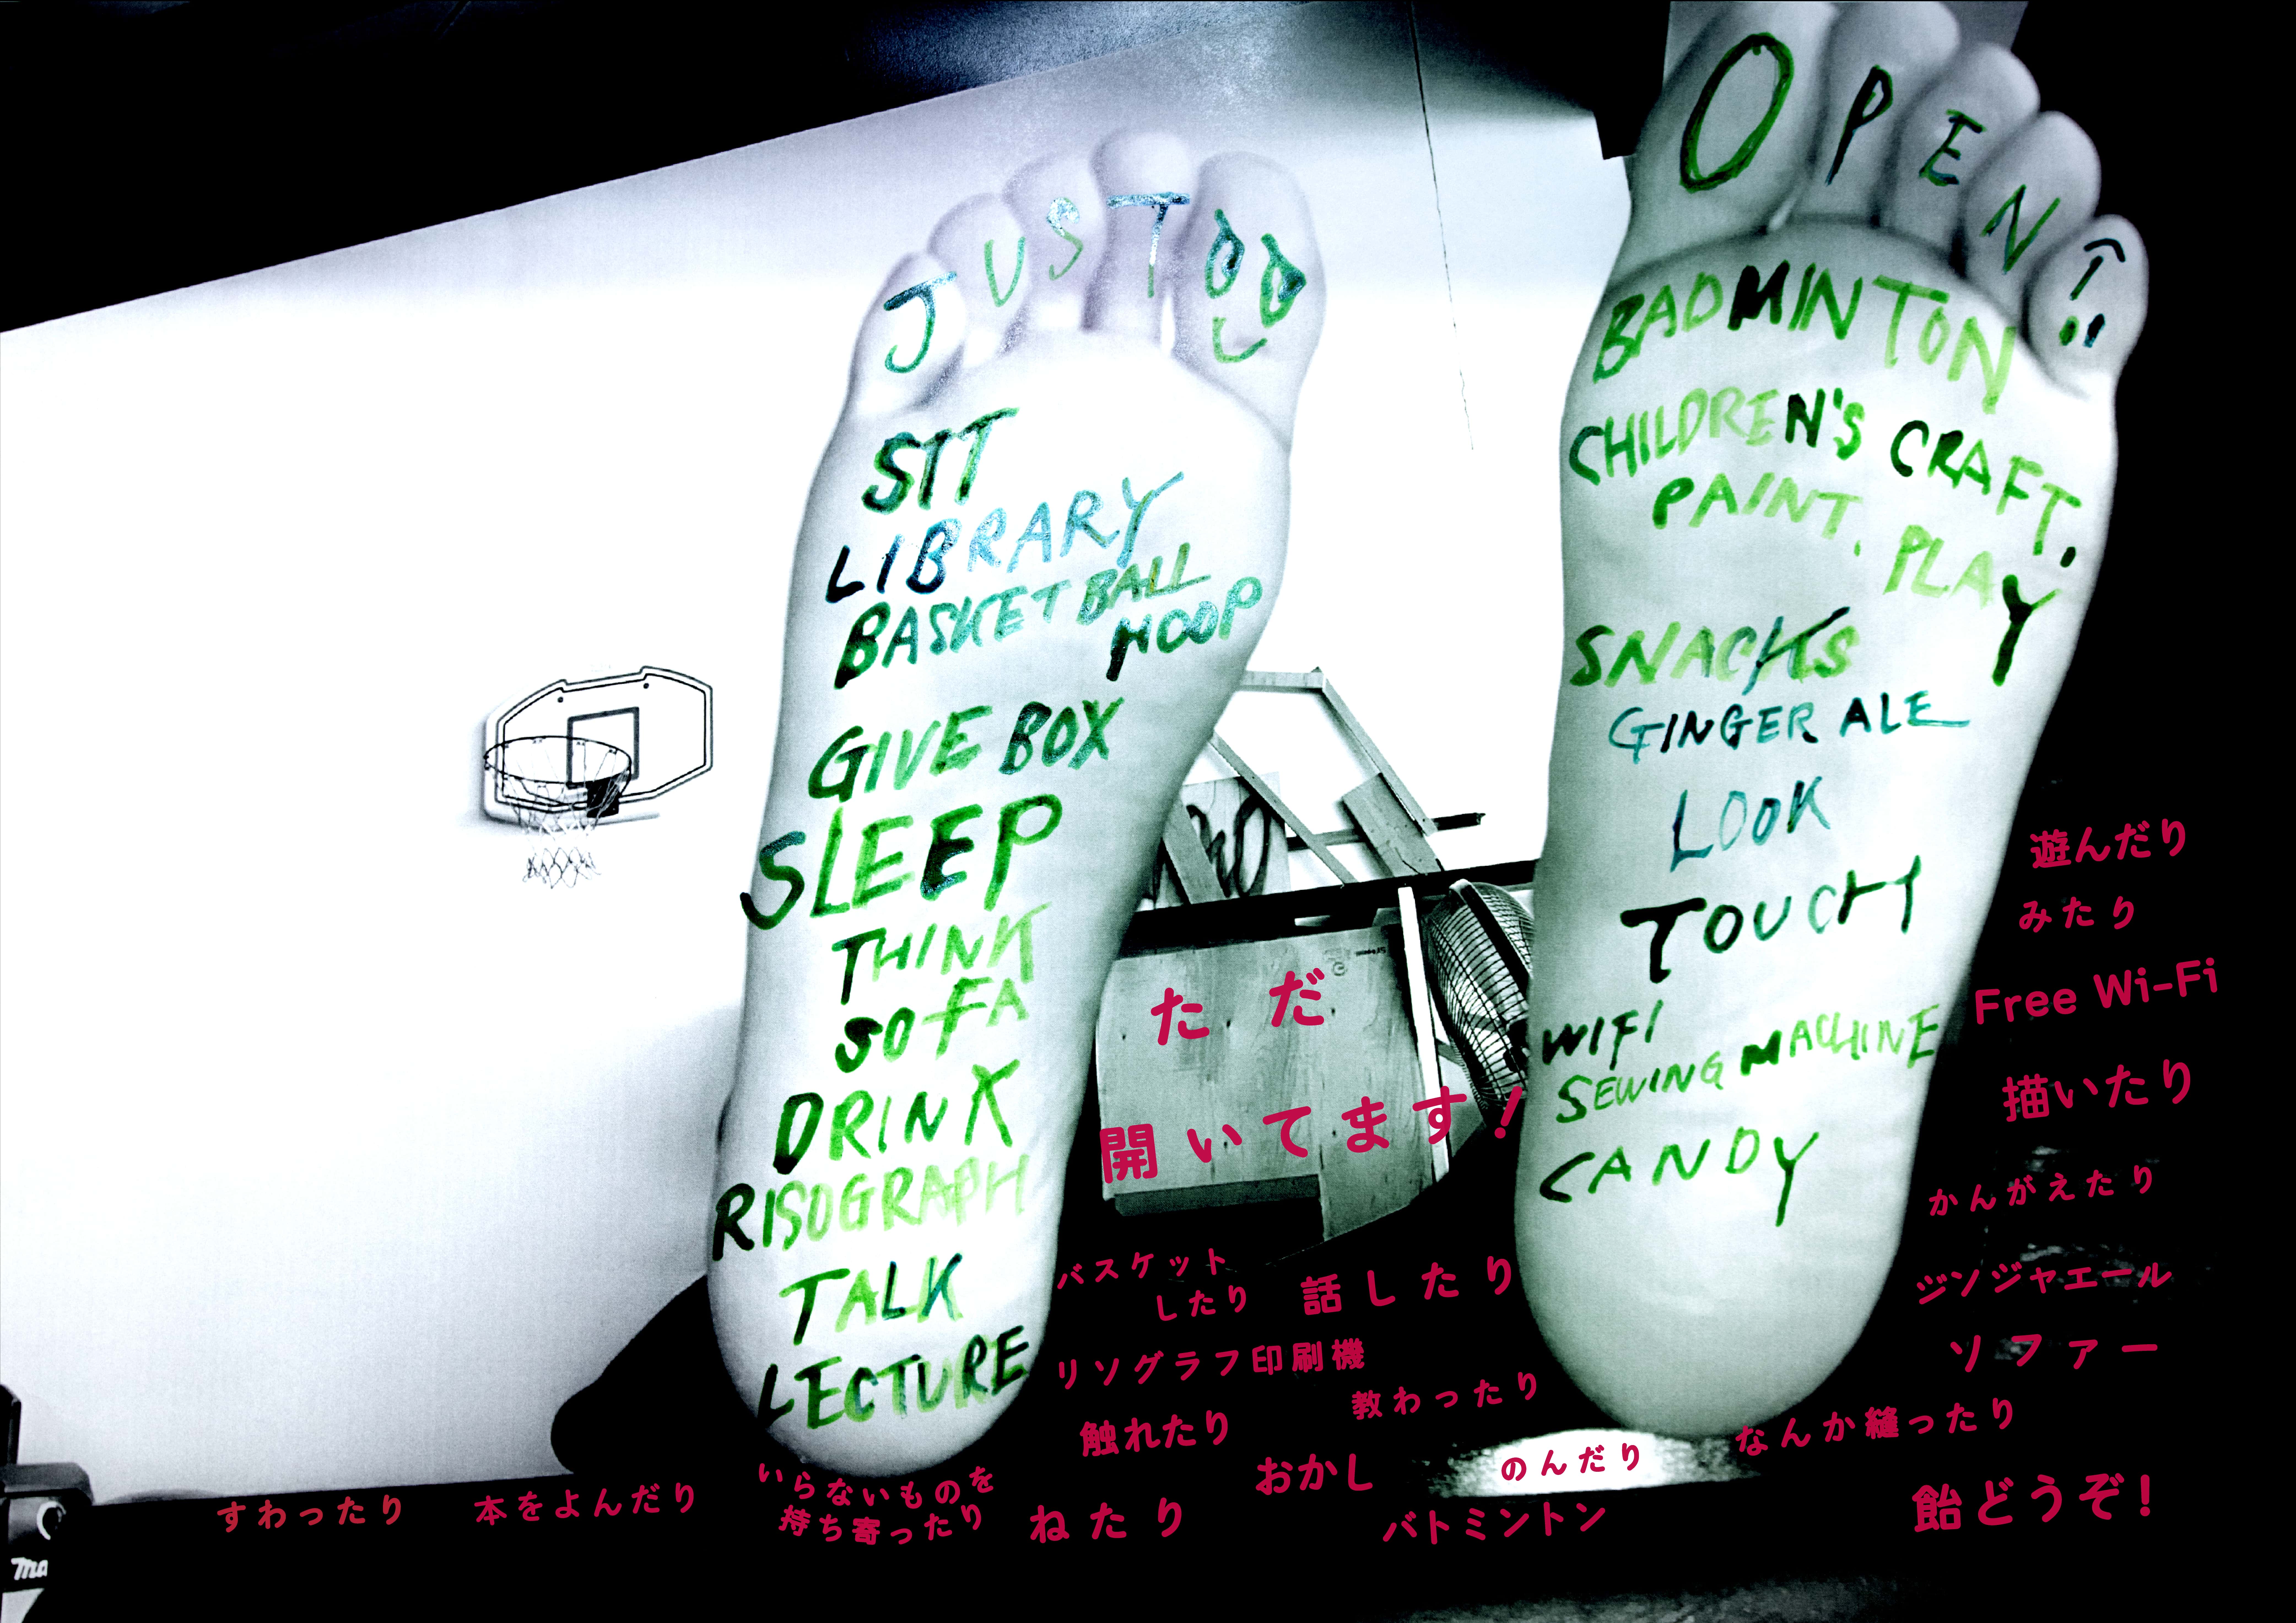 JUST
OPEN
SIT
LIBRARY
BASKETBALL
HOOP
GIVE BOX
SLEEP
THINK
SOFA
DRINK
RISOGRAPH
TALK
LECTURE
BADMINTON
CHILDREN'S CRAFT.
PAINT. PLAY
SNACKS
GINGER ALE
LOOK
TOUCH
WIFI
SEWING MACHINE
CANDY
ただ
開いてます!
遊んだり
みたり
Free Wi-Fi
描いたり
かんがえたり
ジンジャエール
ソファー
なんか縫ったり
飴どうぞ!
バスケット
したり
話したり
リソグラフ印刷機
教わったり
触れたり
おかし
のんだり
バトミントン
すわったり
本をよんだり
いらないものを
持ち寄ったり
ねたり